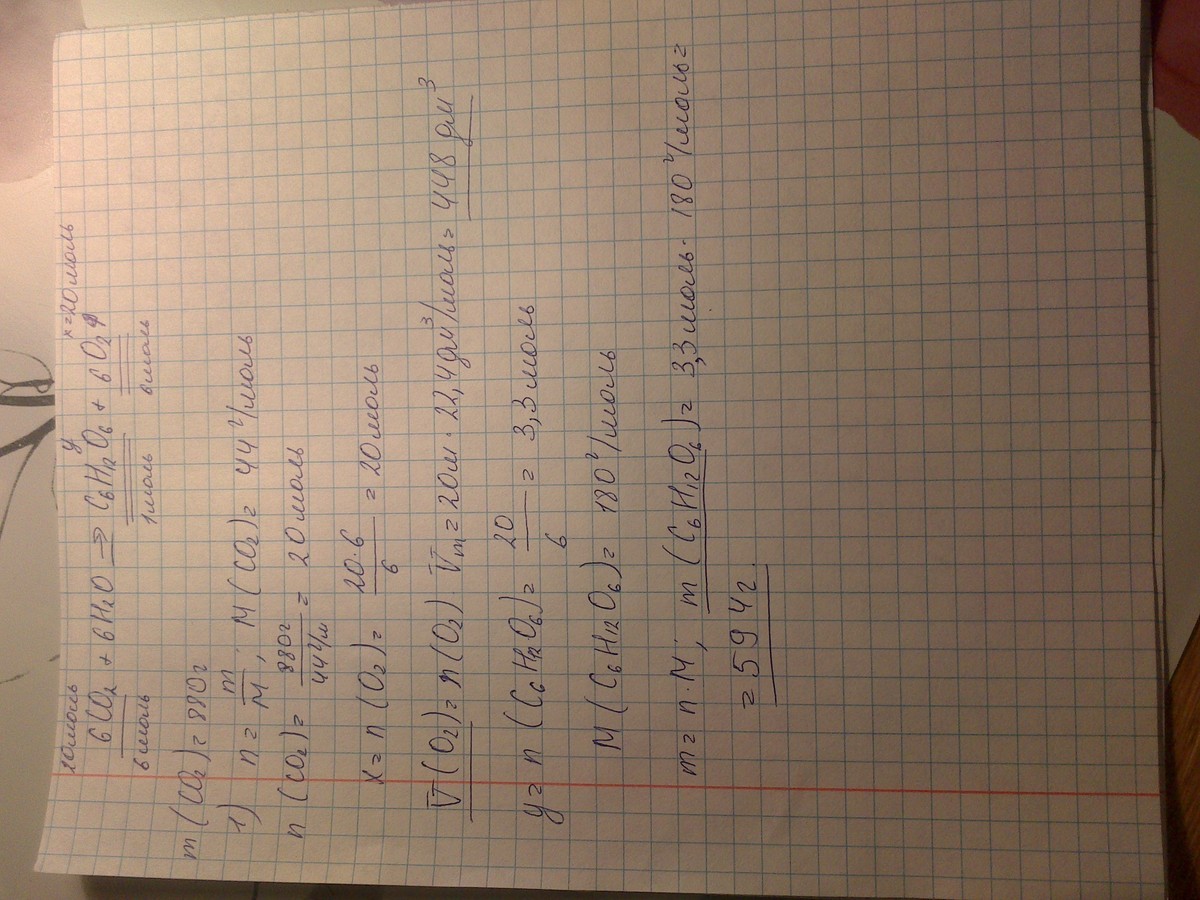 20моль y x=20моль
6CO₂ + 6H₂O => C₆H₁₂O₆ + 6O₂↑
6моль 1моль 6моль
m (CO₂) = 880г
1) n = m/M ; M (CO₂) = 44 г/моль
n (CO₂) = 880г/44 г/м = 20 моль
x = n (O₂) = 20·6/6 = 20 моль
V (O₂) = n (O₂) · Vm = 20м · 22,4дм³/моль = 448 дм³
y = n (C₆H₁₂O₆) = 20/6 = 3,3 моль
M (C₆H₁₂O₆) = 180 г/моль
m = n·M ; m (C₆H₁₂O₆) = 3,3 моль · 180 г/моль =
= 594г.